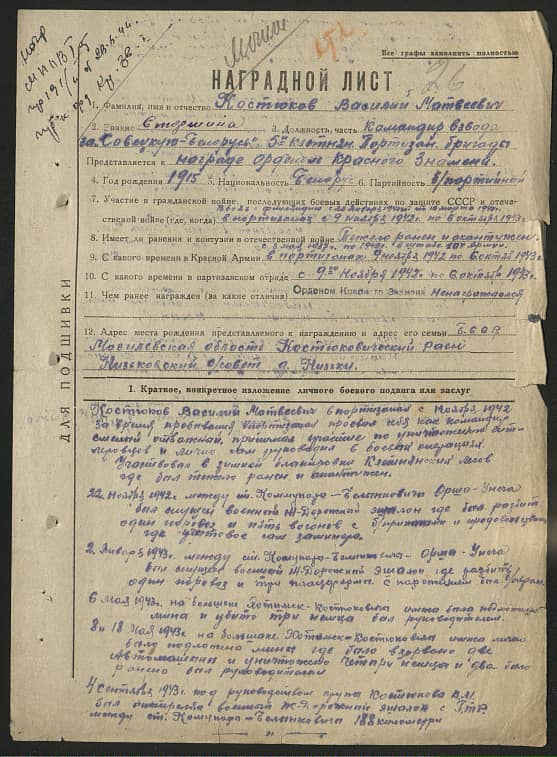 Все графы заполнить полностью
НАГРАДНОЙ ЛИСТ
1. Фамилия, имя и отчество Костюков Василий Матвеевич
2. Звание Старшина 3. Должность, часть Командир взвода
за Советскую Белорусь" 5ой Клетнян. Партизан. бригады
Представляется к награде орденом Красного Знамени.
4. Год рождения 1915 5. Национальность Белорус 6. Партийность б/партийный
7. Участие в гражданской войне, последующих боевых действиях по защите СССР и отече-
ственной войне (где, когда) в партизанах с 9 ноября 1942г. по 6 октября 1943г.
8. Имеет ли ранения и контузии в отечественной войне Тяжело ранен и контужен.
9. С какого времени в Красной Армии в партизанах 9 ноября 1942 по 6 октяб 1943г.
10. С какого времени в партизанском отряде с 9го Ноября 1942г. по 6 октября 1943г.
11. Чем ранее награжден (за какие отличия) Орденом Красного Знамени ненаграждался
12. Адрес места рождения представляемого к награждению и адрес его семьи БССР
Могилевская область Костюковический район
с/совет д.
ДЛЯ ПОДШИВКИ
1. Краткое, конкретное изложение личного боевого подвига или заслуг
Костюков Василий Матвеевич в партизанах с Ноября 1942
За время пребывания в партизанах проявил себя как командир
смелый отважной, принимал участие по уничтожении
и лично сам руководил в боевых операциях.
Участвовал в зимней блакировки Клетнянских лесов
где был тяжело ранен и контужен.
22 Ноября 1942г. между ст. Комунара — Белынковичи Орша — Унеча
был спущен военной Ж-Дорожной эшалон где был разбит
один поровоз и пять вагонов с б/припасами и
где участвовал сам
2 Января 1943г. между ст. Комунара — Белынкович — Орша — Унеча
был спущен военный Ж-Дорожной эшалон где разбито
один поровоз и три плацформы с
6 Мая 1943г. на большаке Хотимск — Костюковичи
мина и убито три немца был руководителем.
8 и 18 Мая 1943г. на большаке Хотимск — Костюковичи лично
было подложено мины где было взорвано две
Автомашины и уничтожено четыри немца и два было
ранено был руководителем
4 Сентября 1943г. под руководством група Костюкова В.М.
был военной Ж-Дорожной эшалон с
между ст. Комунара — Белынковичи 188 километри